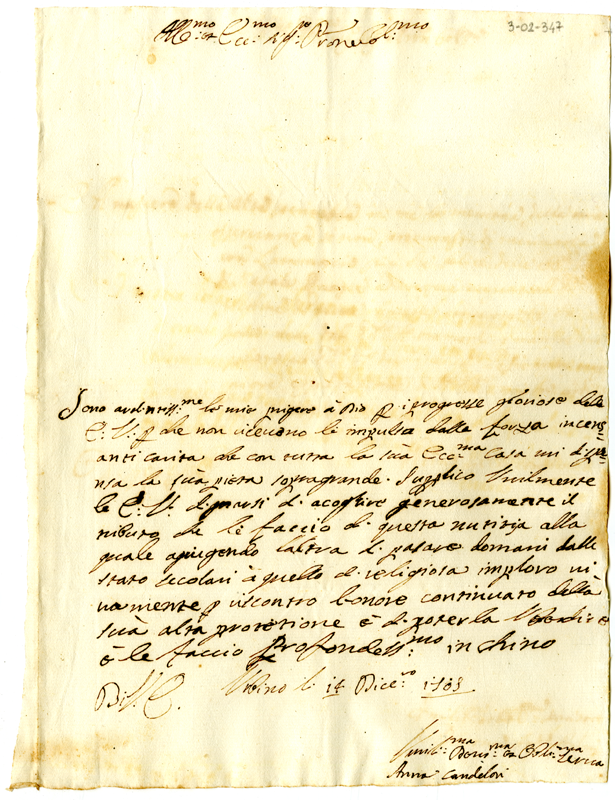 3-02-347
Ill:mo et Ecc:mo Sig:re Prone Col:mo
Sono ardentiss:me le mie pigere à Dio p i progresse gloriose delle
E: V: p che non ricevono le impulsa dalla forza incess
anti carita che con tutta la suà Ecc:ma Casa mi dispe
nsa la suà pieta sopragrande. Supplico Umilmente
le E: V: dignarsi di acoglire generosamente il
tributo che le faccio di questa nutitia alla
quale agiugendo l'altra di pasare domani dalle
stato secolari à quello di religiosa imploro vi
vamente p riscontro l'onore continuato della
suà alta protetione è di poterla
è le faccio Profondess:mo inchino
Di V: E. Urbino li 14 Dice:ro
Umil:ma Devo:ma et Obli:ma Serva
Anna Candelori